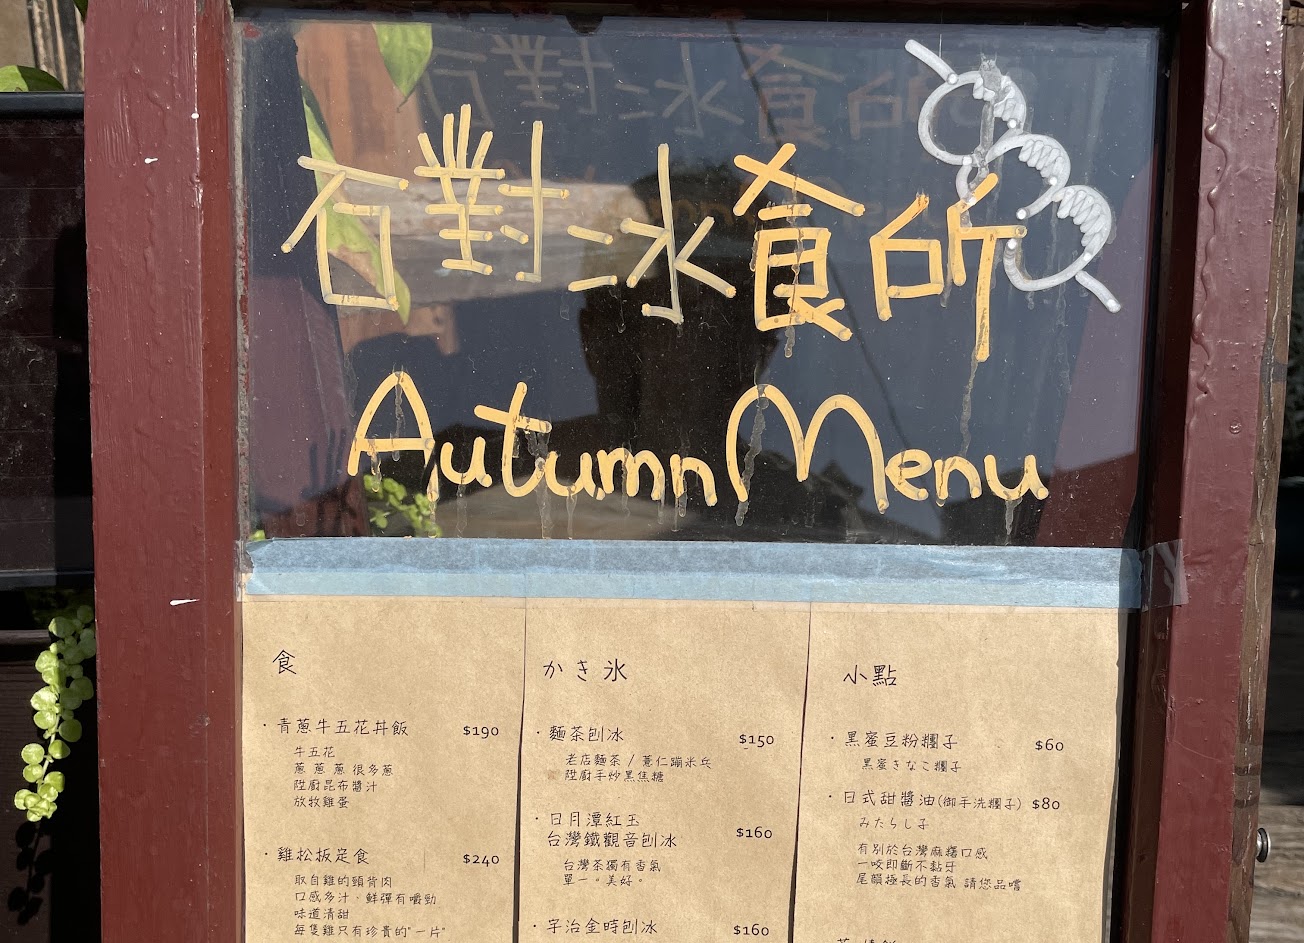 石對冰食所
Autumn Menu
食
・青蔥牛五花丼飯 $190
牛五花
蔥 蔥 蔥 很多蔥
陞廚昆布醬汁
放牧雞蛋
・雞松板定食 $240
取自雞的頸背肉
口感多汁・鮮彈有嚼勁
味道清甜
每隻雞只有珍貴的"一片"
かき氷
・麵茶刨冰 $150
老店麵茶 / 薏仁蹦米乓
陞廚手炒黑焦糖
・日月潭紅玉
台灣鐵觀音刨冰 $160
台灣茶獨有香氣
單一。美好。
・宇治金時刨冰 $160
小點
・黑蜜豆粉糰子 $60
黑蜜きなこ糰子
・日式甜醬油(御手洗糰子) $80
みたらし子
有別於台灣麻糬口感
一咬即斷不黏牙
尾韻極長的香氣 請您品嚐